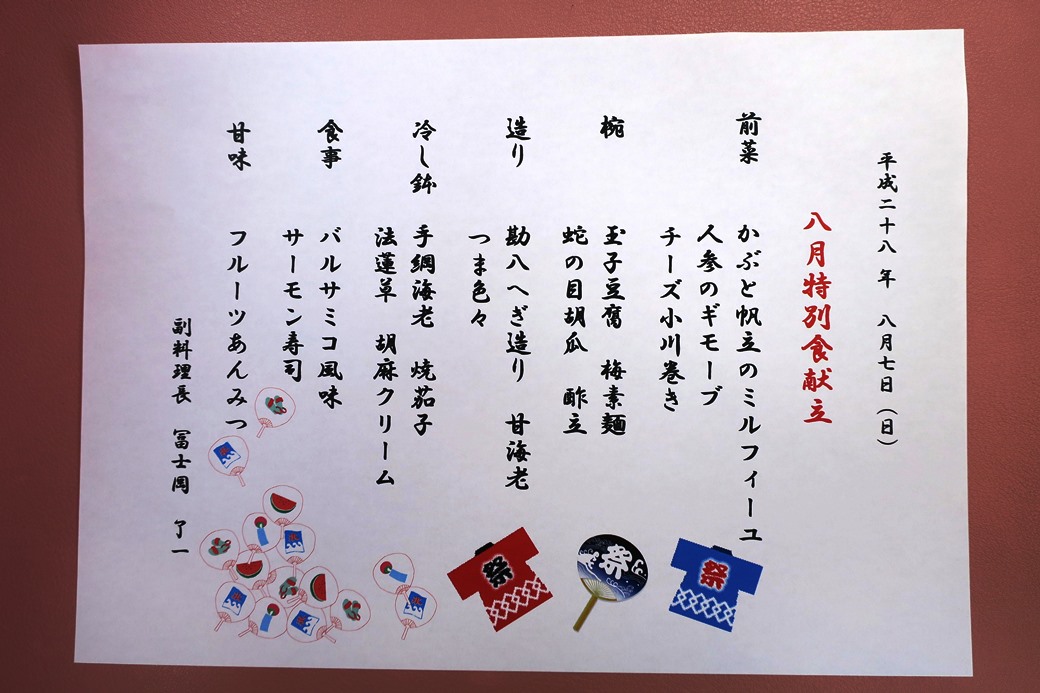 平成二十八年 八月七日（日）
八月特別食献立
前菜 かぶと帆立のミルフィーユ
人参のギモーブ
チーズ小川巻き
椀 玉子豆腐 梅素麺
蛇の目胡瓜 酢立
造り 勘八へぎ造り 甘海老
つま色々
冷し鉢 手綱海老 焼茄子
法蓮草 胡麻クリーム
食事 バルサミコ風味
サーモン寿司
甘味 フルーツあんみつ
副料理長 冨士岡 了一
祭
祭
祭